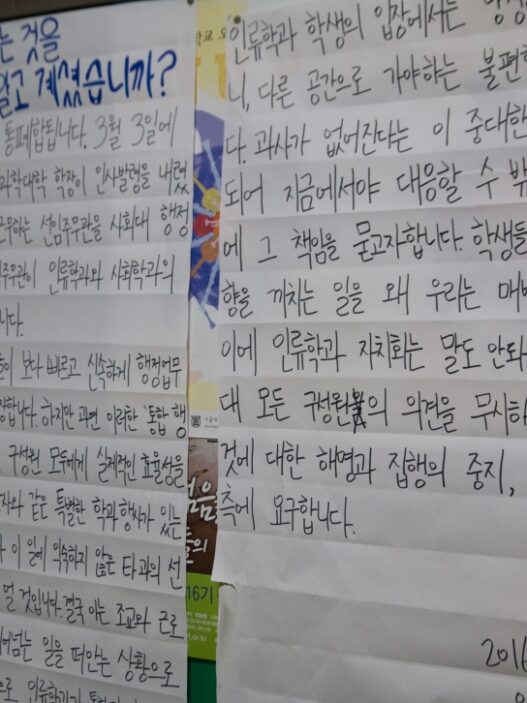 는 것을
알고 계셨습니까?
통폐합됩니다. 3월 3일에
과학대학 학장이 인사발령을 내렸
근무하는 선임주무관을 사회대 행정
주무관이 인류학과와 사회학과의
니다.
들이 보다 빠르고 신속하게 행정업무
장합니다. 하지만 과연 이러한 '통합 행
구성원 모두에게 실제적인 효율성을
자와 같은 특별한 학과 행사가 있는
가 이 일에 익숙하지 않은 타과의 선
덜 것입니다. 결국 이는 조교와 근로
어넘는 일을 떠안는 상황으로
으로 인류학과가
인류학과 학생의 입장에서는 행정
니, 다른 공간으로 가야하는 불편함
다. 과사가 없어진다는 이 중대한
되어 지금에서야 대응할 수 밖
에 그 책임을 묻고자합니다. 학생들
향을 끼치는 일을 왜 우리는 매번
이에 인류학과 자치회는 말도 안되
대 모든 구성원의 의견을 무시하
것에 대한 해명과 집행의 중지,
측에 요구합니다.
2016
학교
들의
16기